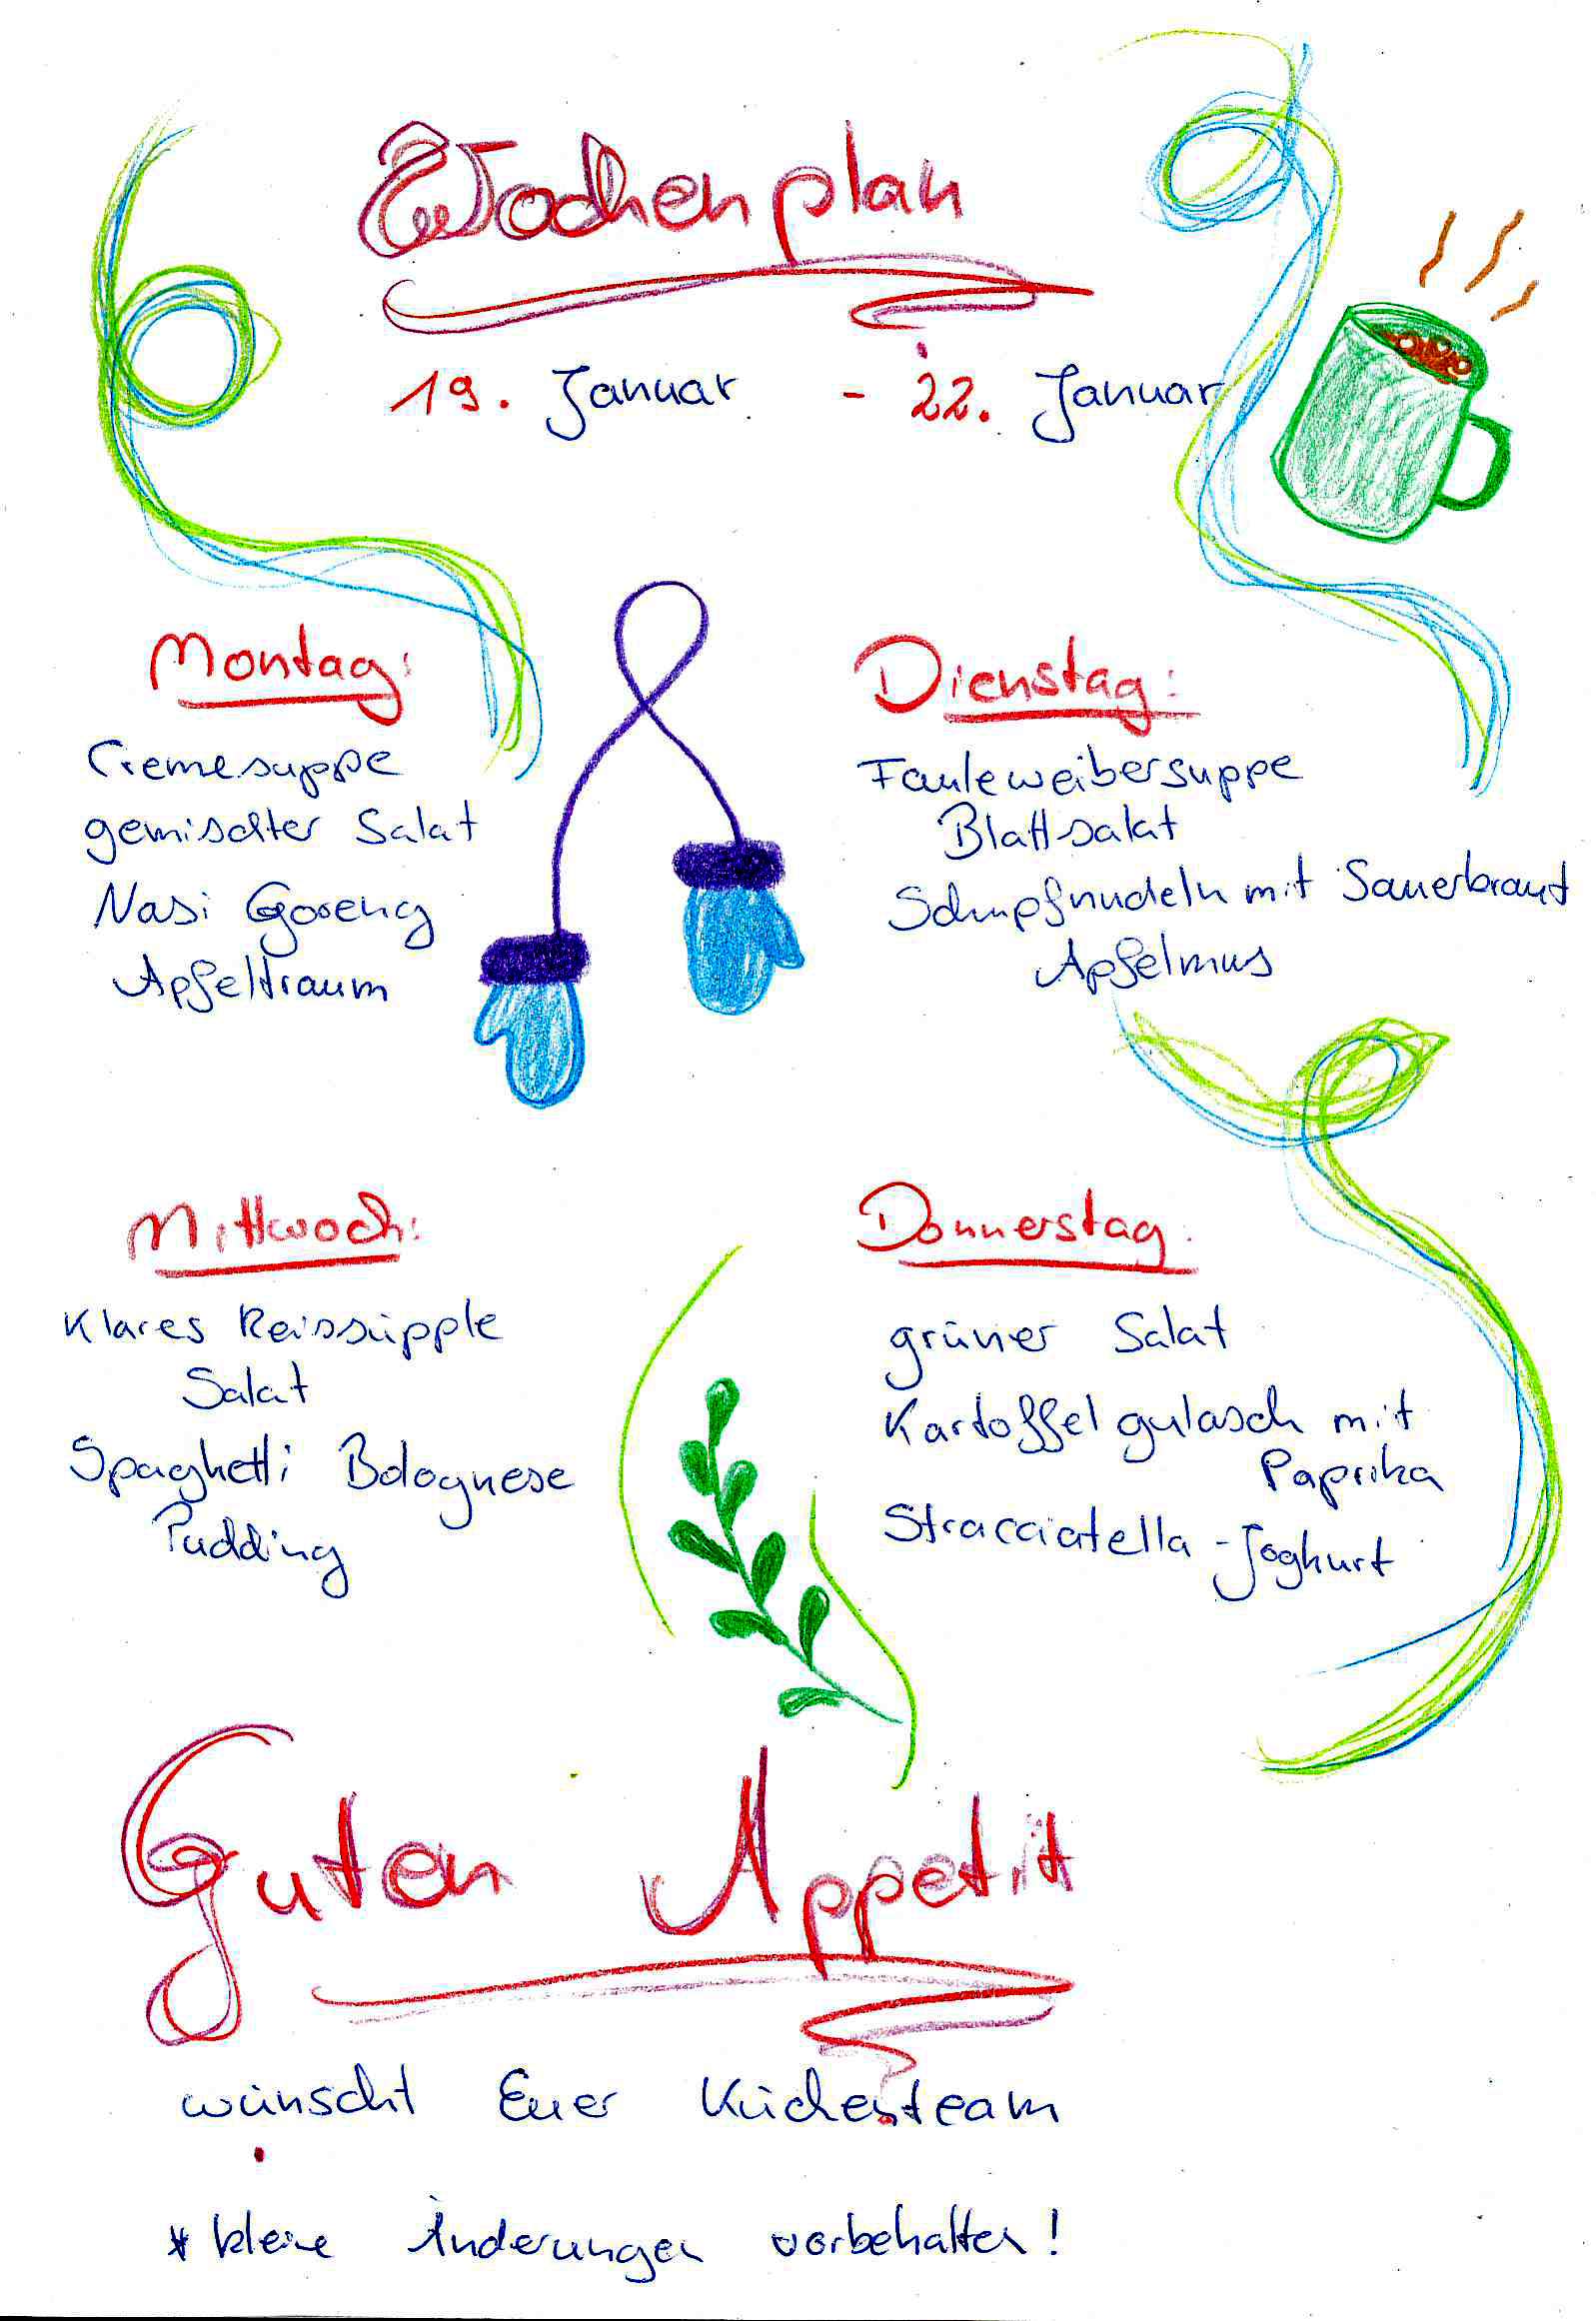 Wochenplan
19. Januar - 22. Januar
Montag:
Cremesuppe
gemischter Salat
Nasi Goreng
Apfeltraum
Dienstag:
Fauleweibersuppe
Blattsalat
Schupfnudeln mit Sauerkraut
Apfelmus
Mittwoch:
Klares Reissüpple
Salat
Spaghetti Bolognese
Pudding
Donnerstag:
grüner Salat
Kartoffelgulasch mit
Paprika
Stracciatella-Joghurt
Guten Appetit
wünscht Euer Küchenteam
* kleine Änderungen vorbehalten!